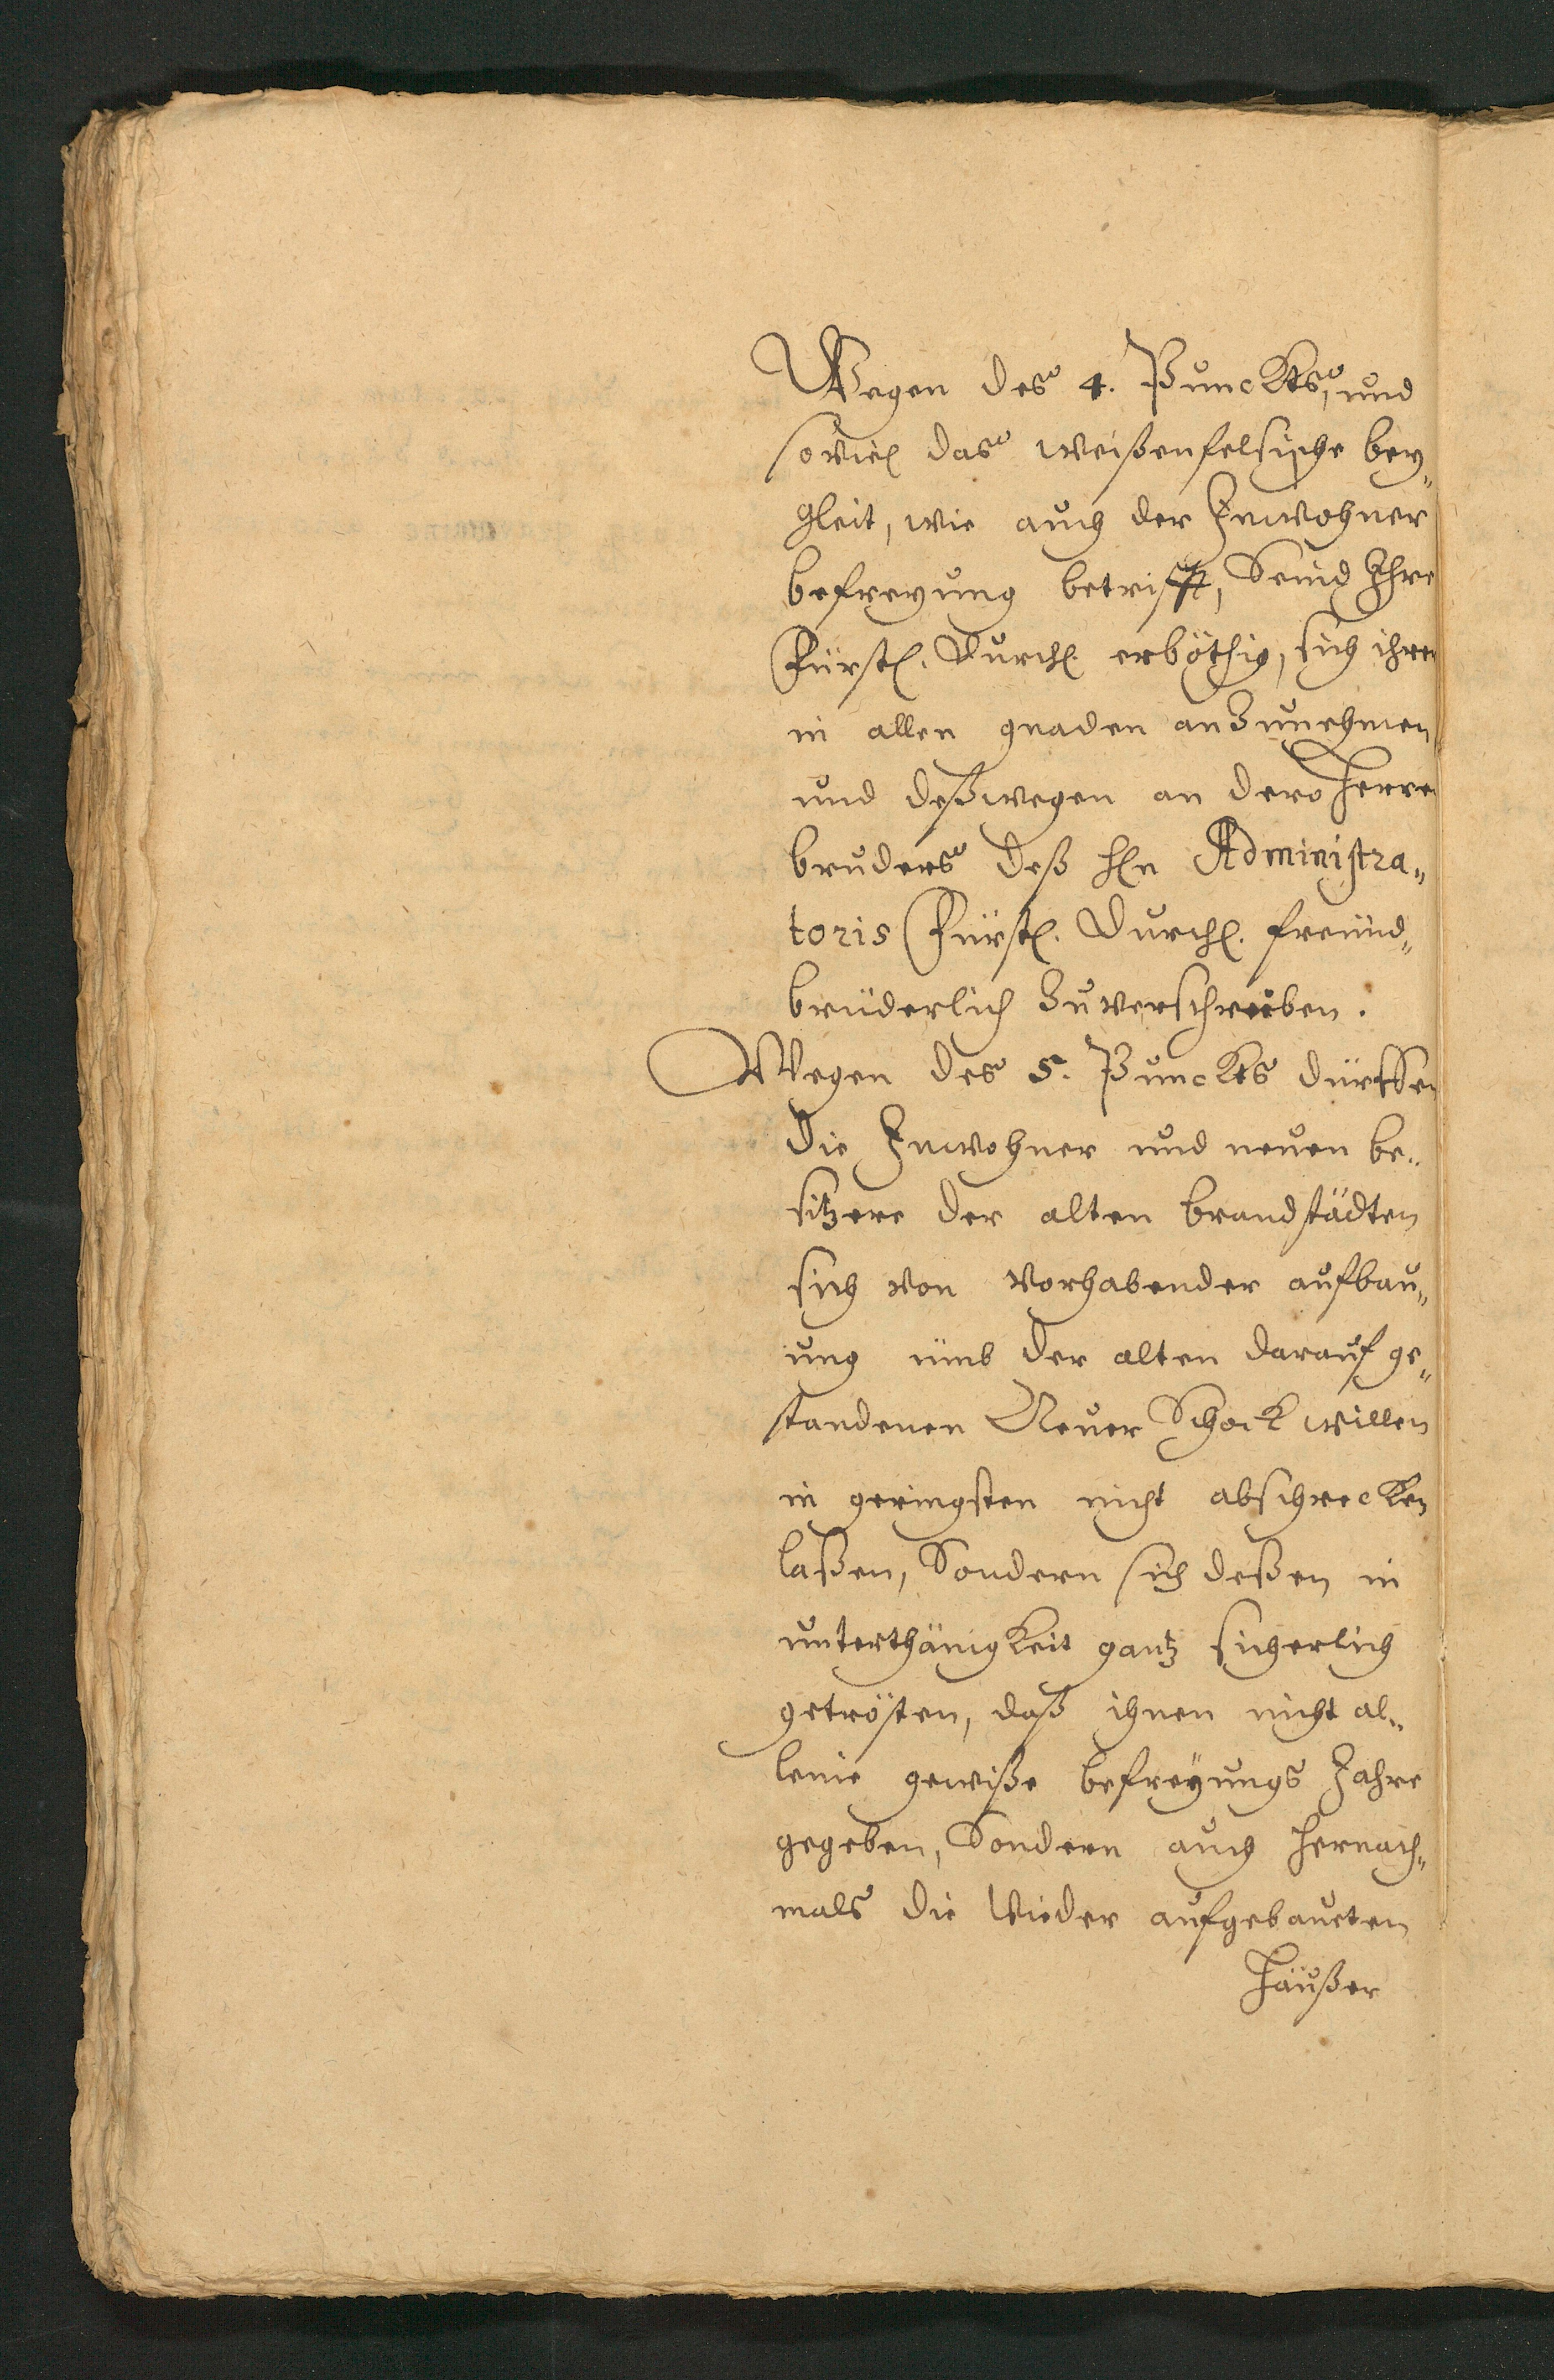 Wegen des 4. Punckts, und
soviel das Weißenfelsische bey„
gleit, wie auch der Inwohner
befreyung betrifft, Seind Ihre
Fürstl. Durchl. erböthig, sich ihrer
in allen gnaden anzunehmen
und deßwegen an dero Herrn
bruders deß Hln Administra„
toris Fürstl. Durchl. freünd„
brüderlich zuverschreiben.
Wegen des 5. Punckts dürffen
die Inwohner und neuen be„
sitzere der alten brandstädten
sich von vorhabender aufbau„
ung ümb der alten darauf ge„
standenen Neuer Schock willen
in geringsten nicht abschrecken
laßen, Sondern sich deßen in
unterthänigkeit gantz sicherlich
getrösten, daß ihnen nicht al„
leine gewiße befreyungs Jahre
gegeben, Sondern auch hernach„
mals die wieder aufgebaueten
Häußer